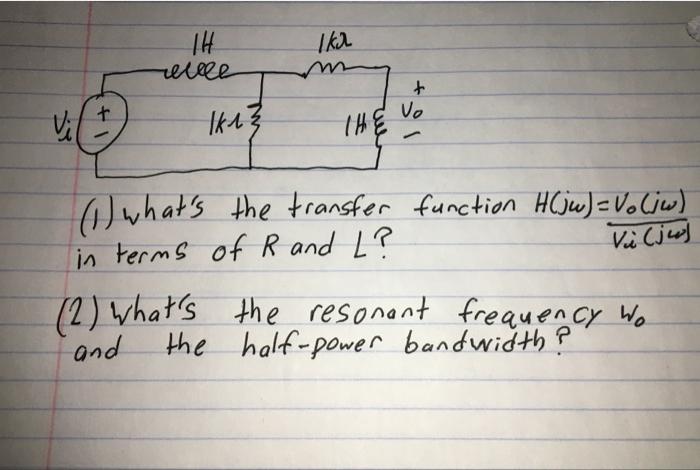 1H 1kΩ
Vi + - 1kΩ 1H + Vo -
(1) what's the transfer function H(jw)=Vo(jw)
Vi(jw)
in terms of R and L?
(2) what's the resonant frequency wo
and the half-power bandwidth?